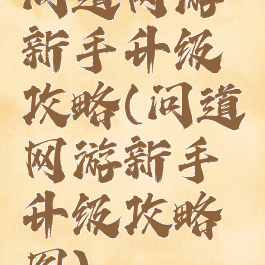 问道网游
新手升级
攻略(问道
网游新手
升级攻略
图)